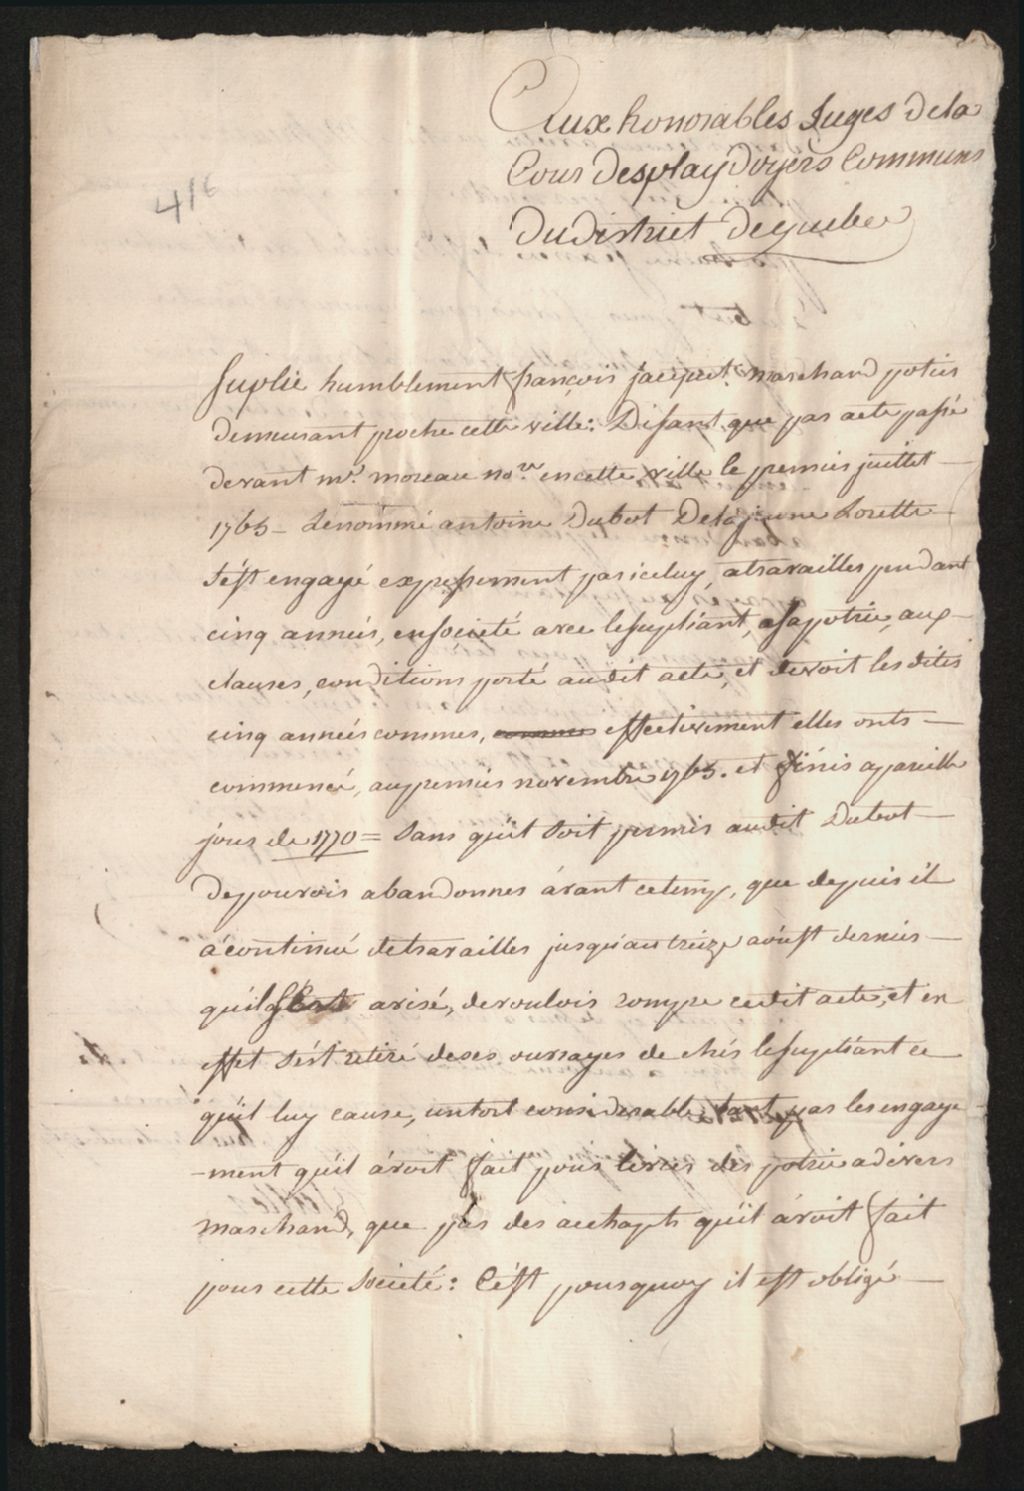 416
Aux honorables Juges dela
Cour desplaydoyers Communs
du district dequebec
Suplie humblement françois jacquet. marchand potier
demeurant proche cette ville: Disant que par acte passé
devant mr. moreau nore. encette ville le premier juillet
1765 - Lenommé antoine Dubot Delajeune Lorette
s'est engagé expressement par iceluy, atravailler pendant
cinq années, ensocieté avec lesupliant, asapotrie, aux
clauses, conditions porté audit acte, et devoit les dites
cinq années commes, effectivement elles onts
commencé, aupremier novembre 1765. et finir apareille
jour de 1770 = Sans qu'il soit permis audit Dubot
depouvoir abandonner avant cetemp, que depuis il
acontinué detravailler jusqu'autreize aoust dernier
qu'il avisé, devouloir rompre cedit acte, et en
effet s'est retiré deses ouvrages de chés lesupliant ce
qu'il luy cause, untort considerable, tant par les engage
-ment qu'il avoit fait pour livrer des potrie adivers
marchand, que par des acchapts qu'il avoit fait
pour cette Societé: C'est pourquoy il est obligé